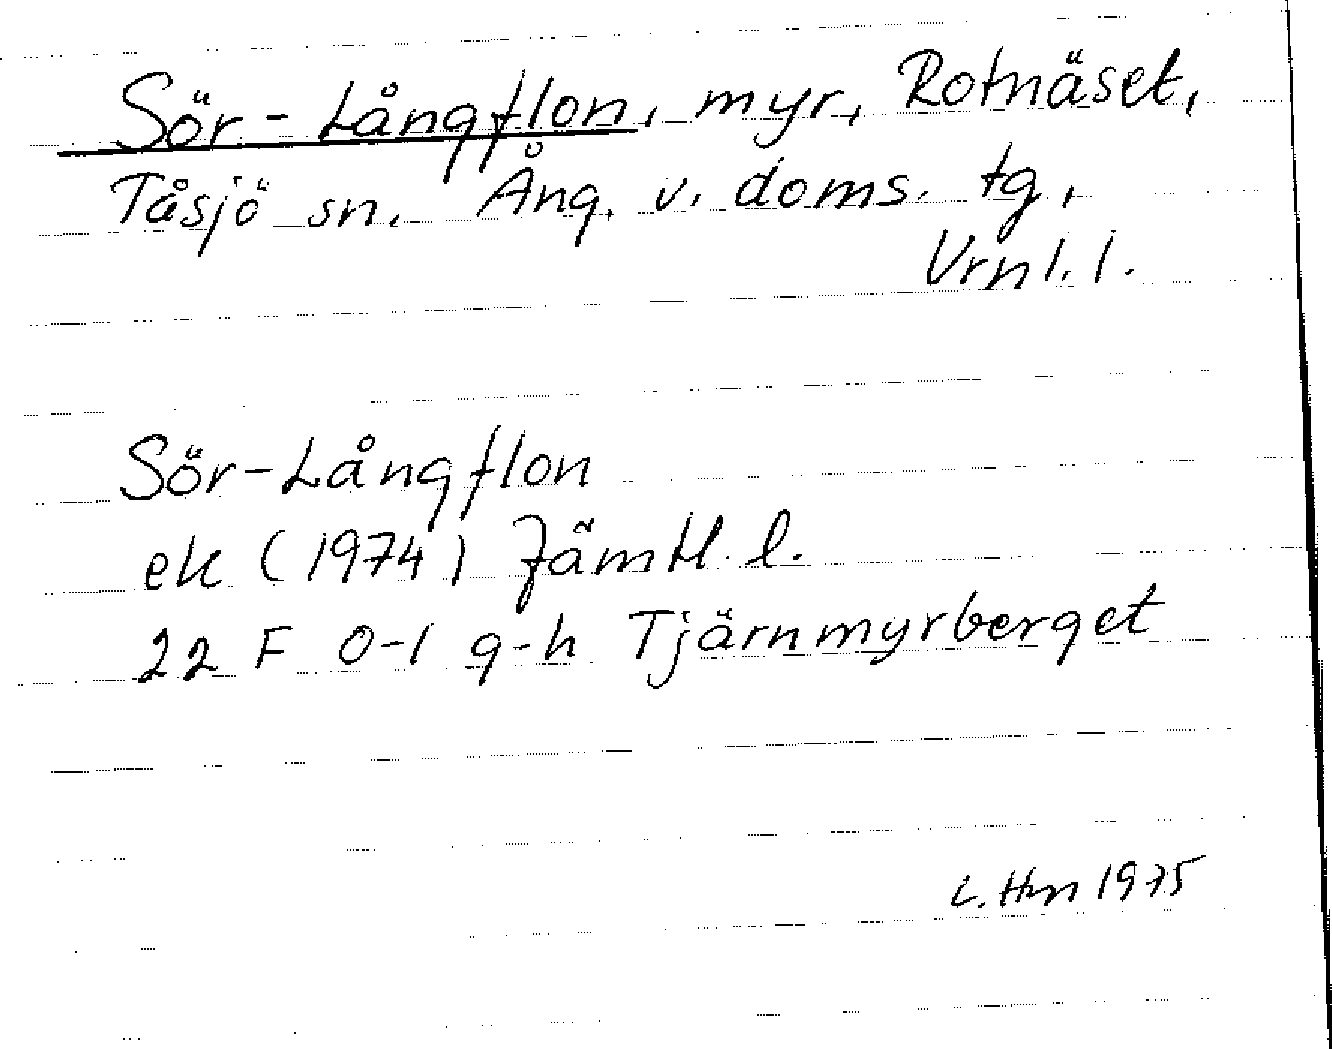 Sör-Långflon, myr, Rotnäset,
Tåsjö sn. Ång. v. doms. tg,
Vrnl. l.
Sör-Långflon
ek (1974) Jämtl. l.
22 F 0-1 g-h Tjärnmyrberget
L. Hm 1975